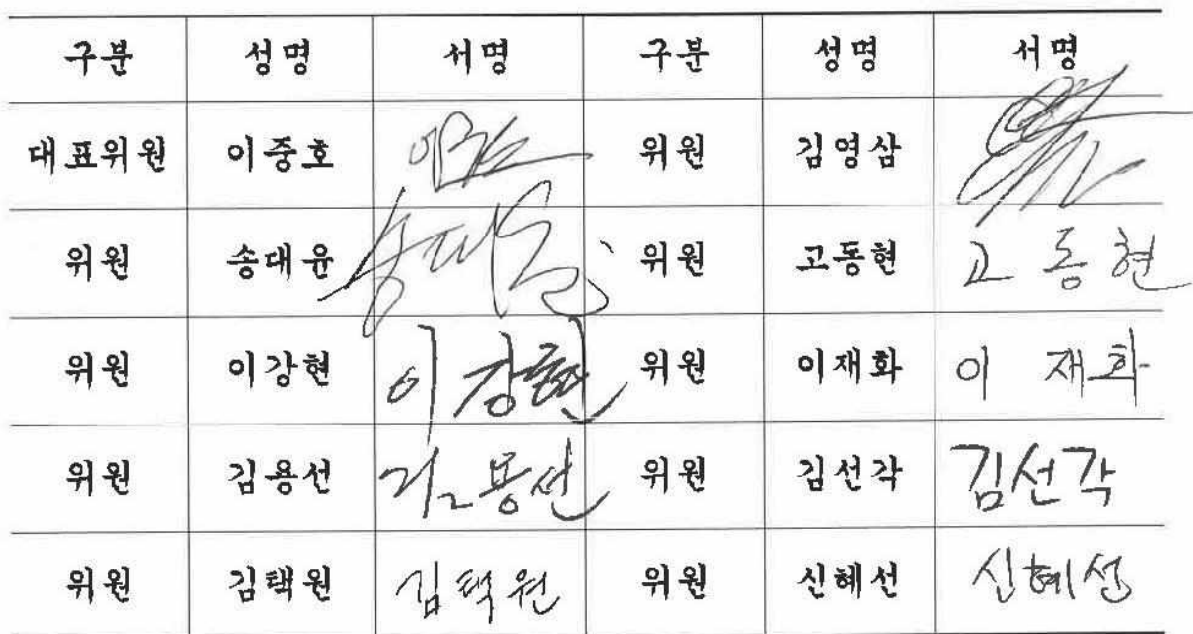 구분 성명 서명 구분 성명 서명
대표위원 이중호 위원 김영삼
위원 송대윤 위원 고동현 고동현
위원 이강현 이강현 위원 이재화 이 재화
위원 김용선 김용선 위원 김선각 김선각
위원 김택원 김택원 위원 신혜선 신혜선